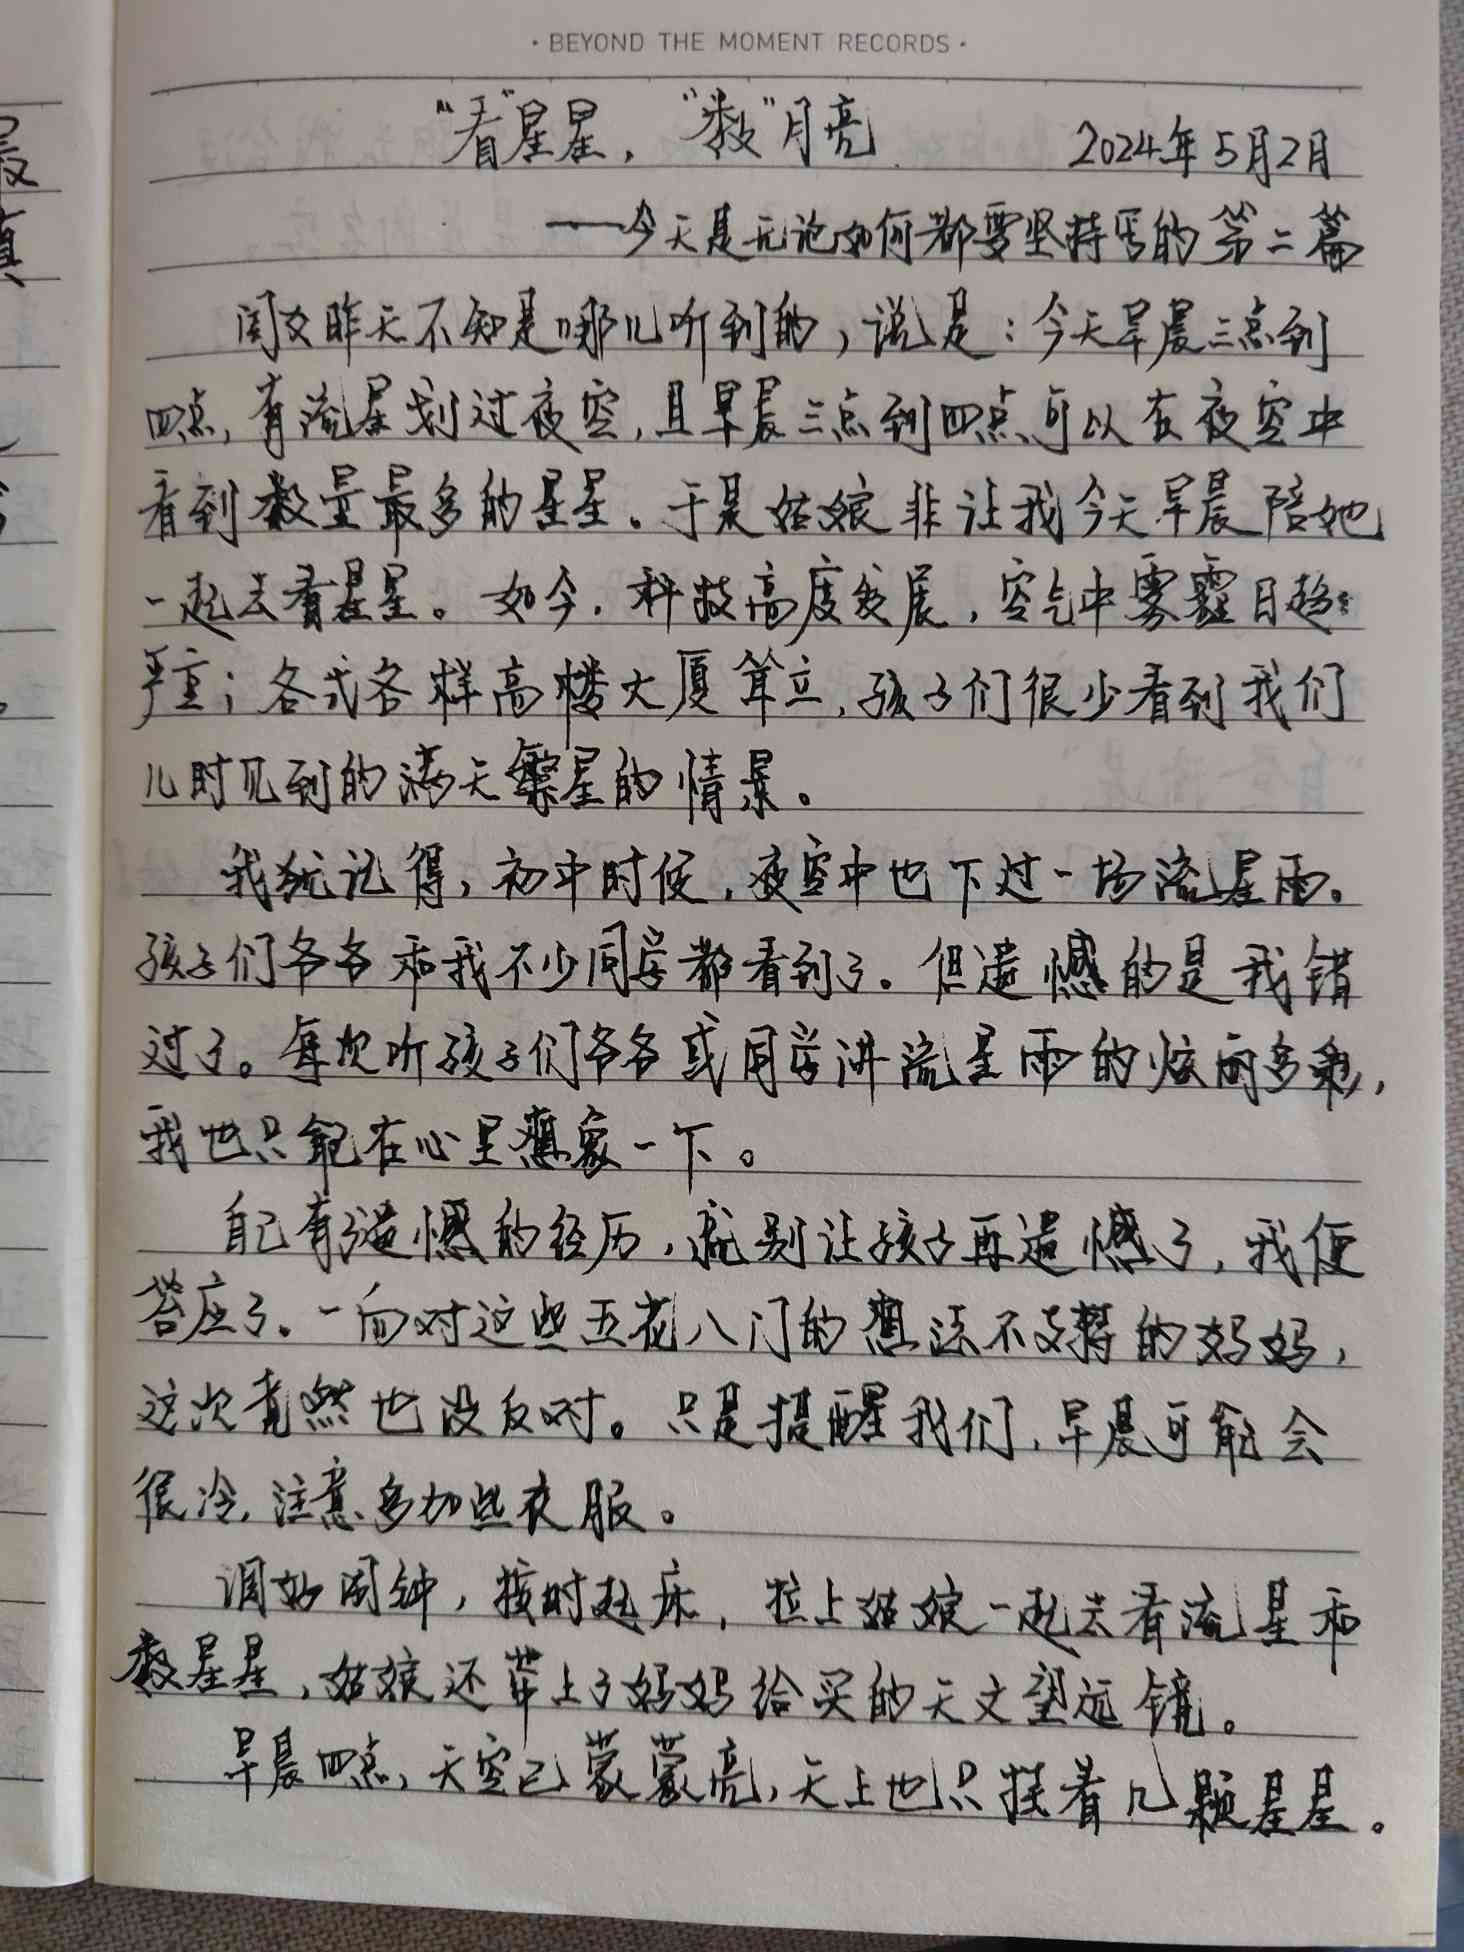 · BEYOND THE MOMENT RECORDS ·
“看”星星，“数”月亮 2024年5月2日
——今天是无论如何都要坚持写的第二篇
闺女昨天不知是哪儿听到的，说是：今天早晨三点到
四点，有流星划过夜空，且早晨三点到四点可以在夜空中
看到数量最多的星星。于是姑娘非让我今天早晨陪她
一起去看星星。如今，科技高度发展，空气中雾霾日趋
严重；各式各样高楼大厦耸立，孩子们很少看到我们
儿时见到的满天繁星的情景。
我犹记得，初中时候，夜空中也下过一场流星雨。
孩子们爷爷和我不少同学都看到了。但遗憾的是我错
过了。每次听孩子们爷爷或同学讲流星雨的炫丽多彩，
我也只能在心里想象一下。
自己有了遗憾的经历，就别让孩子再遗憾了，我便
答应了。一向对这些五花八门的想法不支持的妈妈，
这次竟然也没反对。只是提醒我们，早晨可能会
很冷，注意多加些衣服。
调好闹钟，按时起床，拉上姑娘一起去看流星和
数星星，姑娘还带上了妈妈给买的天文望远镜。
早晨四点，天空已蒙蒙亮，天上也只挂着几颗星星。